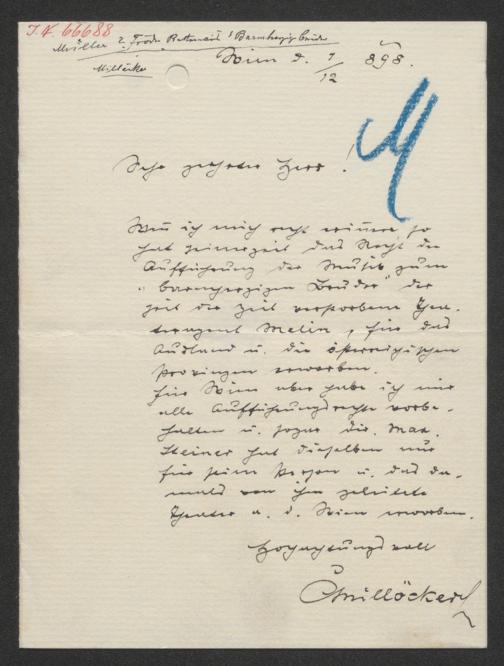 I.N. 66688
Müller ? Barmherzige Brüder
Millöcker
Wien d. 1/12 898.
M
Sehr geehrter Herr!
Wenn ich mich recht erinnere, so
hat seinerzeit das Recht der
Aufführung der Musik zum
"barmherzigen Bruder" der
seit der Zeit verstorbene Thea-
teragent Melin, für das
Ausland u. die österreichischen
Provinzen erworben.
Für Wien aber habe ich mir
alle Aufführungsrechte vorbe-
halten u. sogar Dir. Max
Steiner hat dieselben nur
für seine Person u. das da-
mals von ihm geleitete
Theater a. d. Wien erworben.
Hochachtungsvoll
CMillöcker